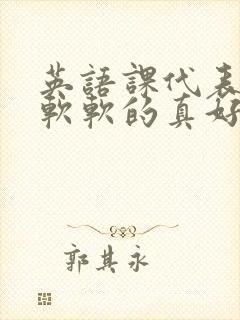 英語課代表
軟軟的真好
郭其永